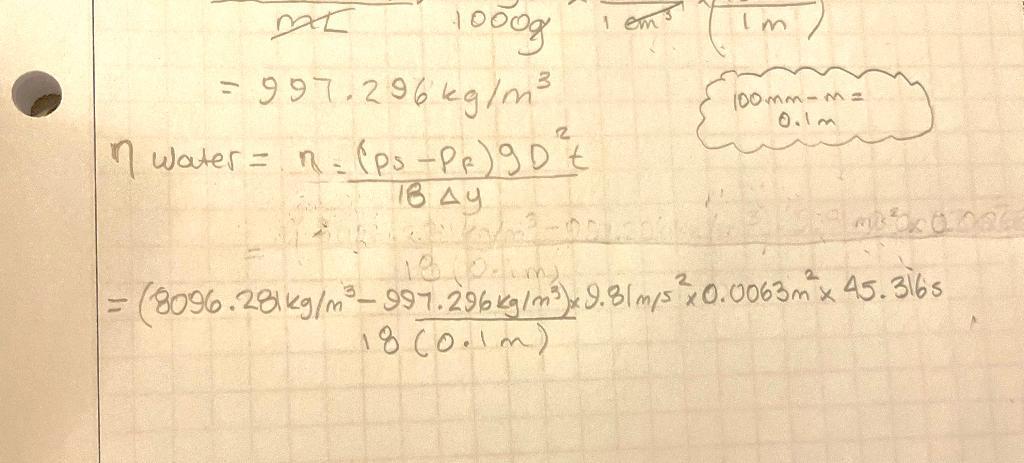 mL 1000g 1 cm³ ( 1 m )
= 997.296 kg/m³
100mm - m =
0.1m
η water = η = (ρs - ρf) g D² t
18 Δy
18 (0.1m)
= (8096.281kg/m³ - 997.296kg/m³) x 9.81m/s² x 0.0063m² x 45.316s
18 (0.1m)